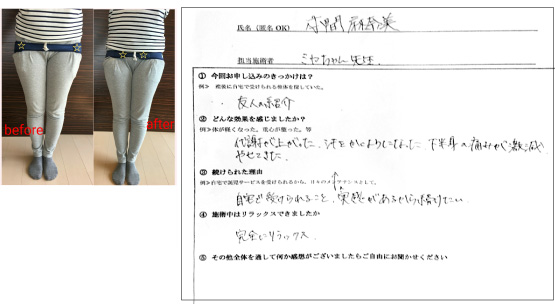 before
after
氏名（匿名OK）
担当施術者 ミヤちゃん先生
① 今回お申し込みのきっかけは？
例> 産後に自宅で受けられる整体を探していた。
友人の紹介
② どんな効果を感じましたか？
例> 体が軽くなった。重心が整った。等
代謝が上がった、汗をかくようになった 下半身の痛みが激減
やせてきた。
③ 続けられた理由
例> 自宅で託児サービスを受けられるから、日々のメンテナンスとして。
自宅で受けられること、実感があるから続けたい
④ 施術中はリラックスできましたか
完全にリラックス
⑤ その他全体を通して何か感想がございましたらご自由にお聞かせください